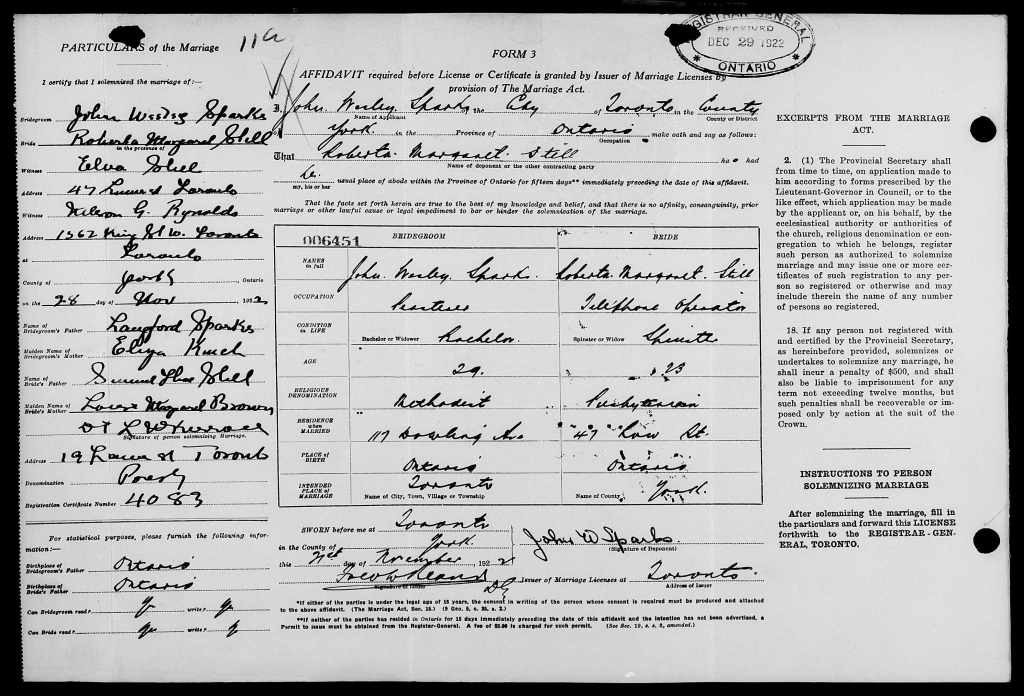 PARTICULARS of the Marriage
11a
I certify that I solemnized the marriage of:—
Bridegroom John Wesley Sparks
Bride Roberta Margaret Still
in the province of
Witness Elva Still
Address 47 Toronto
Witness G. Rynolds
Address 1362 King St W. Toronto
at Toronto
County of York, Ontario
on the 28 day of Nov 1922
Name of Bridegroom's Father Langford Sparks
Maiden Name of Bridegroom's Mother Eliza
Name of Bride's Father Still
Maiden Name of Bride's Mother Margaret Brown
Signature of person solemnizing Marriage.
Address 19 St Toronto
Denomination
Registration Certificate Number 4083
For statistical purposes, please furnish the following information:—
Birthplace of Bridegroom's Father Ontario
Birthplace of Bride's Father Ontario
Can Bridegroom read? write?
Can Bride read? write?
REGISTRAR GENERAL
RECEIVED
DEC 29 1922
ONTARIO
FORM 3
AFFIDAVIT required before License or Certificate is granted by Issuer of Marriage Licenses by
provision of The Marriage Act.
I, John Wesley Sparks of the City of Toronto in the County
Name of Applicant County or District
York in the Province of Ontario make oath and say as follows:
Occupation
That Roberta Margaret Still has had
Name of deponent or the other contracting party
her usual place of abode within the Province of Ontario for fifteen days** immediately preceding the date of this affidavit.
my, his or her
That the facts set forth herein are true to the best of my knowledge and belief, and that there is no affinity, consanguinity, prior
marriage or other lawful cause or legal impediment to bar or hinder the solemnization of the marriage.
006451 BRIDEGROOM BRIDE
NAMES in full John Wesley Sparks Roberta Margaret Still
OCCUPATION Telephone Operator
CONDITION in LIFE Bachelor or Widower Bachelor Spinster or Widow Spinster
AGE 29 23
RELIGIOUS DENOMINATION Methodist Presbyterian
RESIDENCE WHEN MARRIED 117 Dowling Ave 47 St.
PLACE OF BIRTH Ontario Ontario
INTENDED PLACE OF MARRIAGE Toronto York
Name of City, Town, Village or Township Name of County
SWORN before me at Toronto
in the County of York John W Sparks
(Signature of Deponent)
this day of November 1922
Issuer of Marriage Licenses at Toronto
Signature of Issuer Address of Issuer
*If either of the parties is under the legal age of 18 years, the consent in writing of the person whose consent is required must be produced and attached
to the above affidavit. (The Marriage Act, Sec. 15.) (9 Geo. 5, c. 35, s. 2.)
**If neither of the parties has resided in Ontario for 15 days immediately preceding the date of this affidavit and the intention has not been advertised, a
Permit to issue must be obtained from the Register-General. A fee of $2.00 is charged for such permit. (See Sec. 19, s. s. 3, amended.)
EXCERPTS FROM THE MARRIAGE
ACT.
2. (1) The Provincial Secretary shall
from time to time, on application made to
him according to forms prescribed by the
Lieutenant-Governor in Council, or to the
like effect, which application may be made
by the applicant or, on his behalf, by the
ecclesiastical authority or authorities
of the church, religious denomination or con-
gregation to which he belongs, register
such person as authorized to solemnize
marriage and may issue one or more cer-
tificates of such registration to any per-
son so registered or otherwise and may
include therein the name of any number
of persons so registered.
18. If any person not registered with
and certified by the Provincial Secretary,
as hereinbefore provided, solemnizes or
undertakes to solemnize any marriage, he
shall incur a penalty of $500, and shall
also be liable to imprisonment for any
term not exceeding twelve months, but
such penalties shall be recoverable or im-
posed only by action at the suit of the
Crown.
INSTRUCTIONS TO PERSON
SOLEMNIZING MARRIAGE
After solemnizing the marriage, fill in
the particulars and forward this LICENSE
forthwith to the REGISTRAR-GEN-
ERAL, TORONTO.